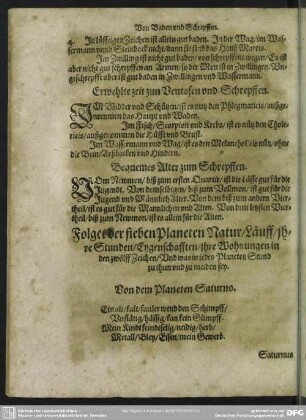 Von Baden vnd Schrepffen.
In lüfftigen Zeichen ist allein gut baden. In der Wag/ im Was-
sermann vnnd Steinbock nicht/ dann sie sind das Hauß Martis.
Im Zwilling ist nicht gut baden/ von schrepffens wegen/ Es ist
aber nicht gut schrepffen an Armen/ so der Mon ist im Zwillingen. Vn-
geschrepfft aber ist gut baden in Zwillingen vnd Wassermann.
Erwehlte zeit zum Ventosen vnd Schrepffen.
IM Widder vnd Schützen/ ist es nutz den Phlegmaticis/ außge-
nommen das Haupt vnd Waden.
Im Fisch/ Scorpion vnd Krebs/ ist es nütz den Chole-
ricis/ außgenommen die Füsse vnd Brust.
Im Wassermann vnd Wag/ ist es den Melancholicis nütz/ ohne
die Bein/ Arßbacken vnd Hindern.
Bequemes Alter zum Schrepffen.
VOm Newmon/ biß zum ersten Quartir/ ist die Lässe gut für die
Jugendt. Von demselbigen/ biß zum Vollmon/ ist gut für die
Jugend vnd Männlich Alter. Von dem biß zum andern Vier-
theil/ ist es gut für die Mannlichen vnd Alten. Von dem letzten Vier-
theil/ biß zum Newmon/ ist es allein für die Alten.
Folget der sieben Planeten Natur/ Läuff/ jh-
re Stunden/ Eygenschafften/ jhre Wohnungen in
den zwölff Zeichen/ Vnd was in jedes Planeten Stund
zu thun vnd zu meiden sey.
Von dem Planeten Saturno.
Ein alt/ kalt/ fauler wend den Schimpff/
Vnflätig/ hässig/ kan kein Glümpff.
Mein Kindt feindtselig/ neidig/ herb/
Metall/ Bley/ Eisen/ mein Gewerb.
Saturnus